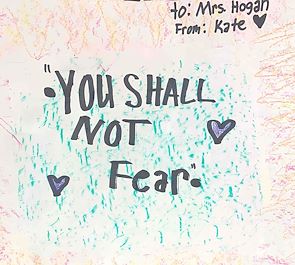 to: Mrs. Hogan
From: Kate
"YOU SHALL
NOT
Fear."